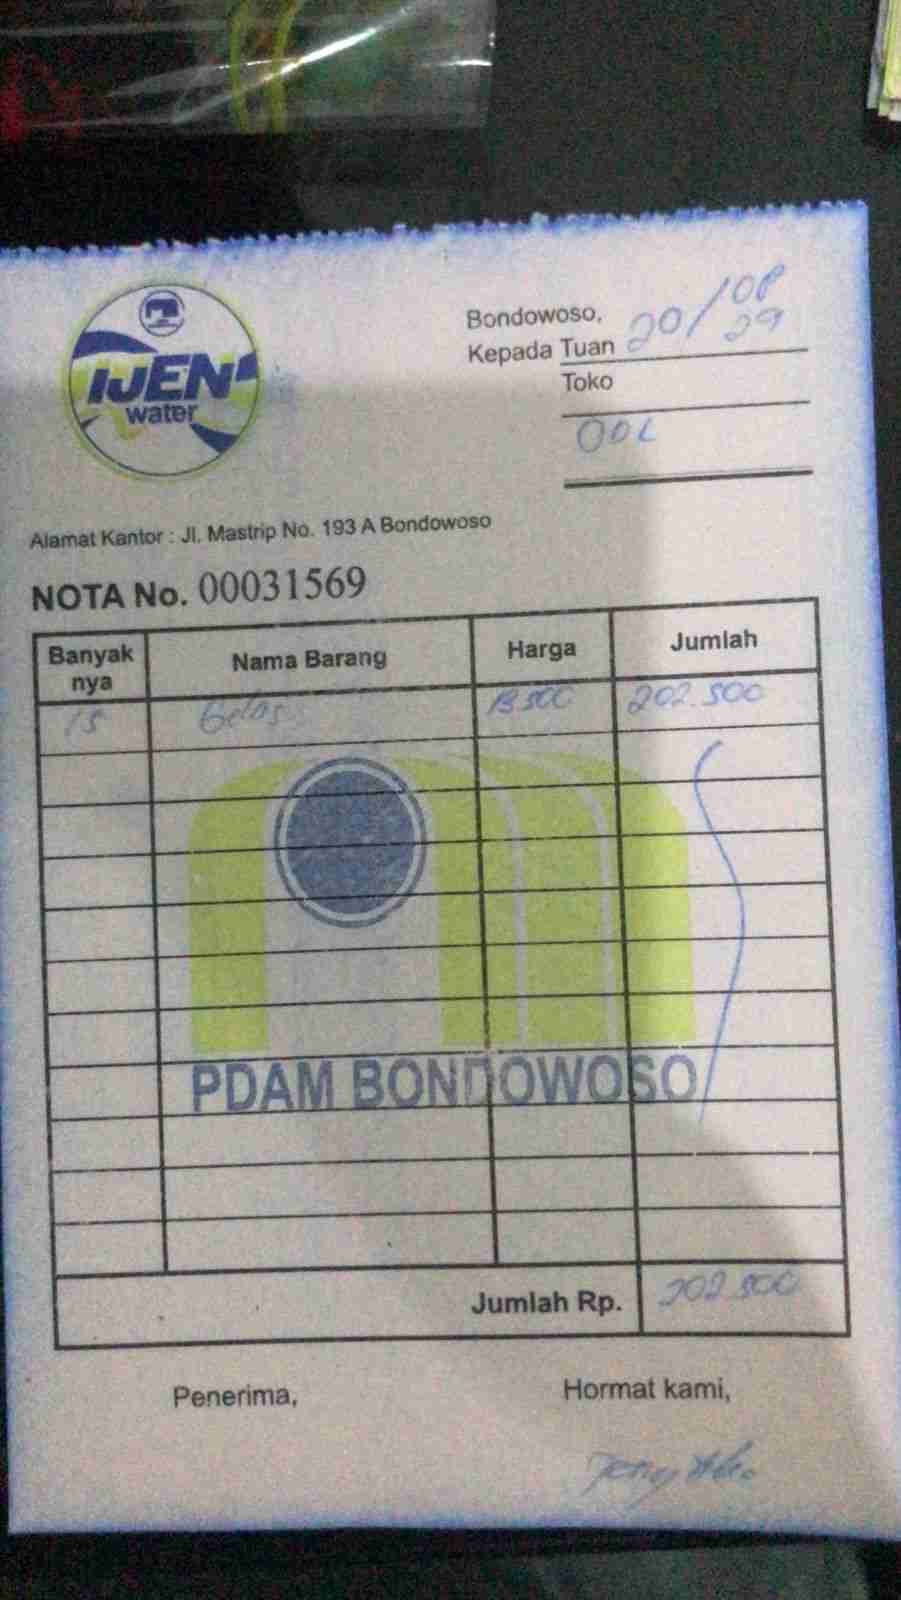 IJEN
water
Bondowoso, 20/08
Kepada Tuan 29
Toko
ODL
Alamat Kantor : Jl. Mastrip No. 193 A Bondowoso
NOTA No. 00031569
Banyak nya Nama Barang Harga Jumlah
15 Gelas 13.500 202.500
PDAM BONDOWOSO
Jumlah Rp. 202.500
Penerima, Hormat kami,